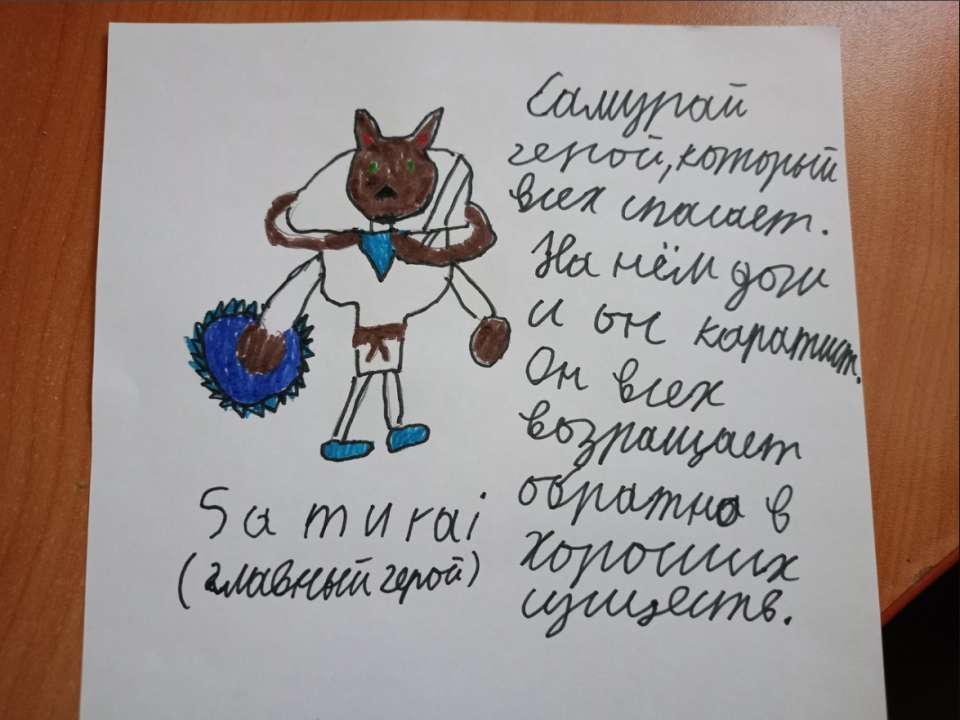 Самурай
герой, который
всех спасает.
На нём доги
и он каратист.
Он всех
возращает
обратно в
хороших
существ.
Samurai
(главный герой)